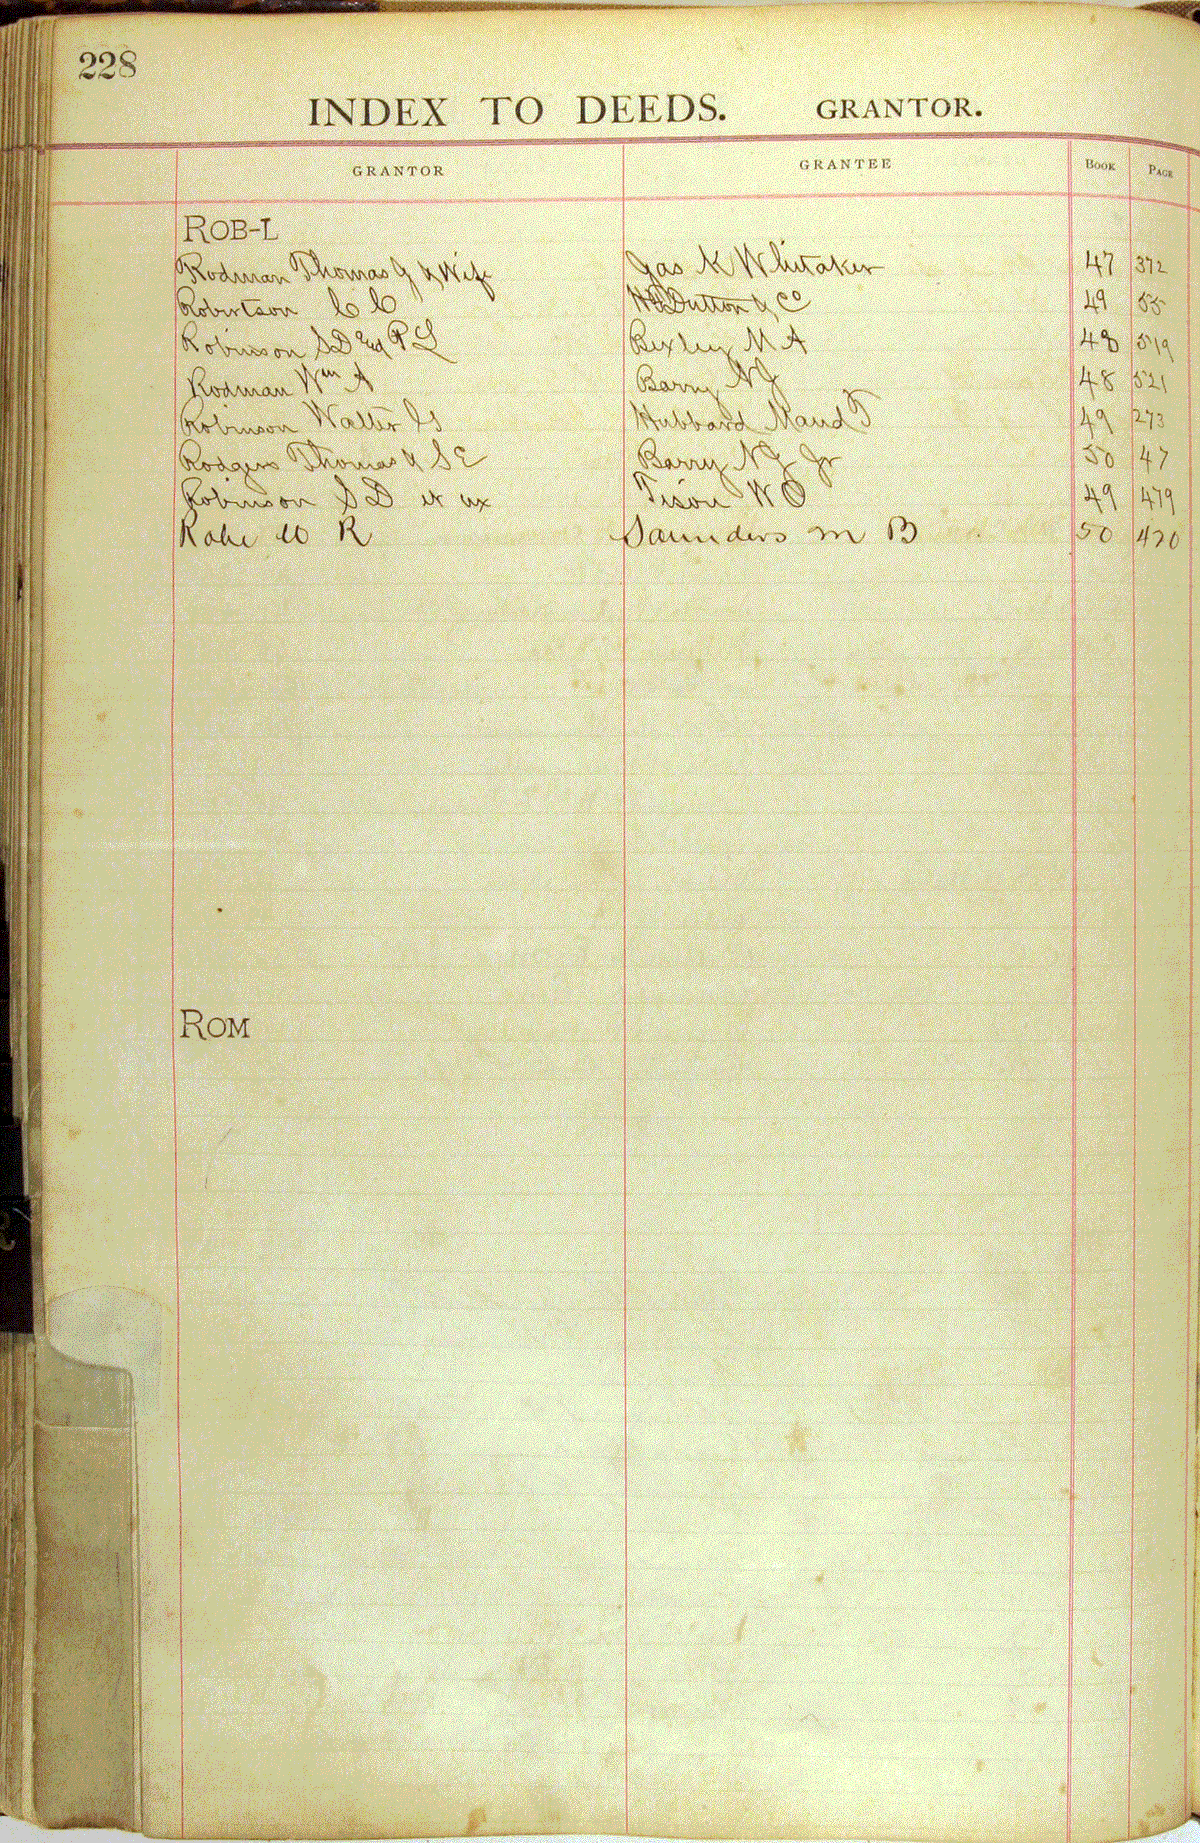 228
INDEX TO DEEDS. GRANTOR.
GRANTOR GRANTEE BOOK PAGE
ROB-L
Rodman Thomas J & Wife Jas K Whitaker 47 372
Robertson C C Dutton & Co 49 55
Robinson S D and P L Bexley M A 48 519
Rodman Wm A Barry N J 48 521
Robinson Walter G Hubbard Maud T 49 273
Rodgers Thomas & S E Barry N J Jr 50 47
Robinson S D et ux Tison W O 49 479
W R Saunders M B 50 420
ROM